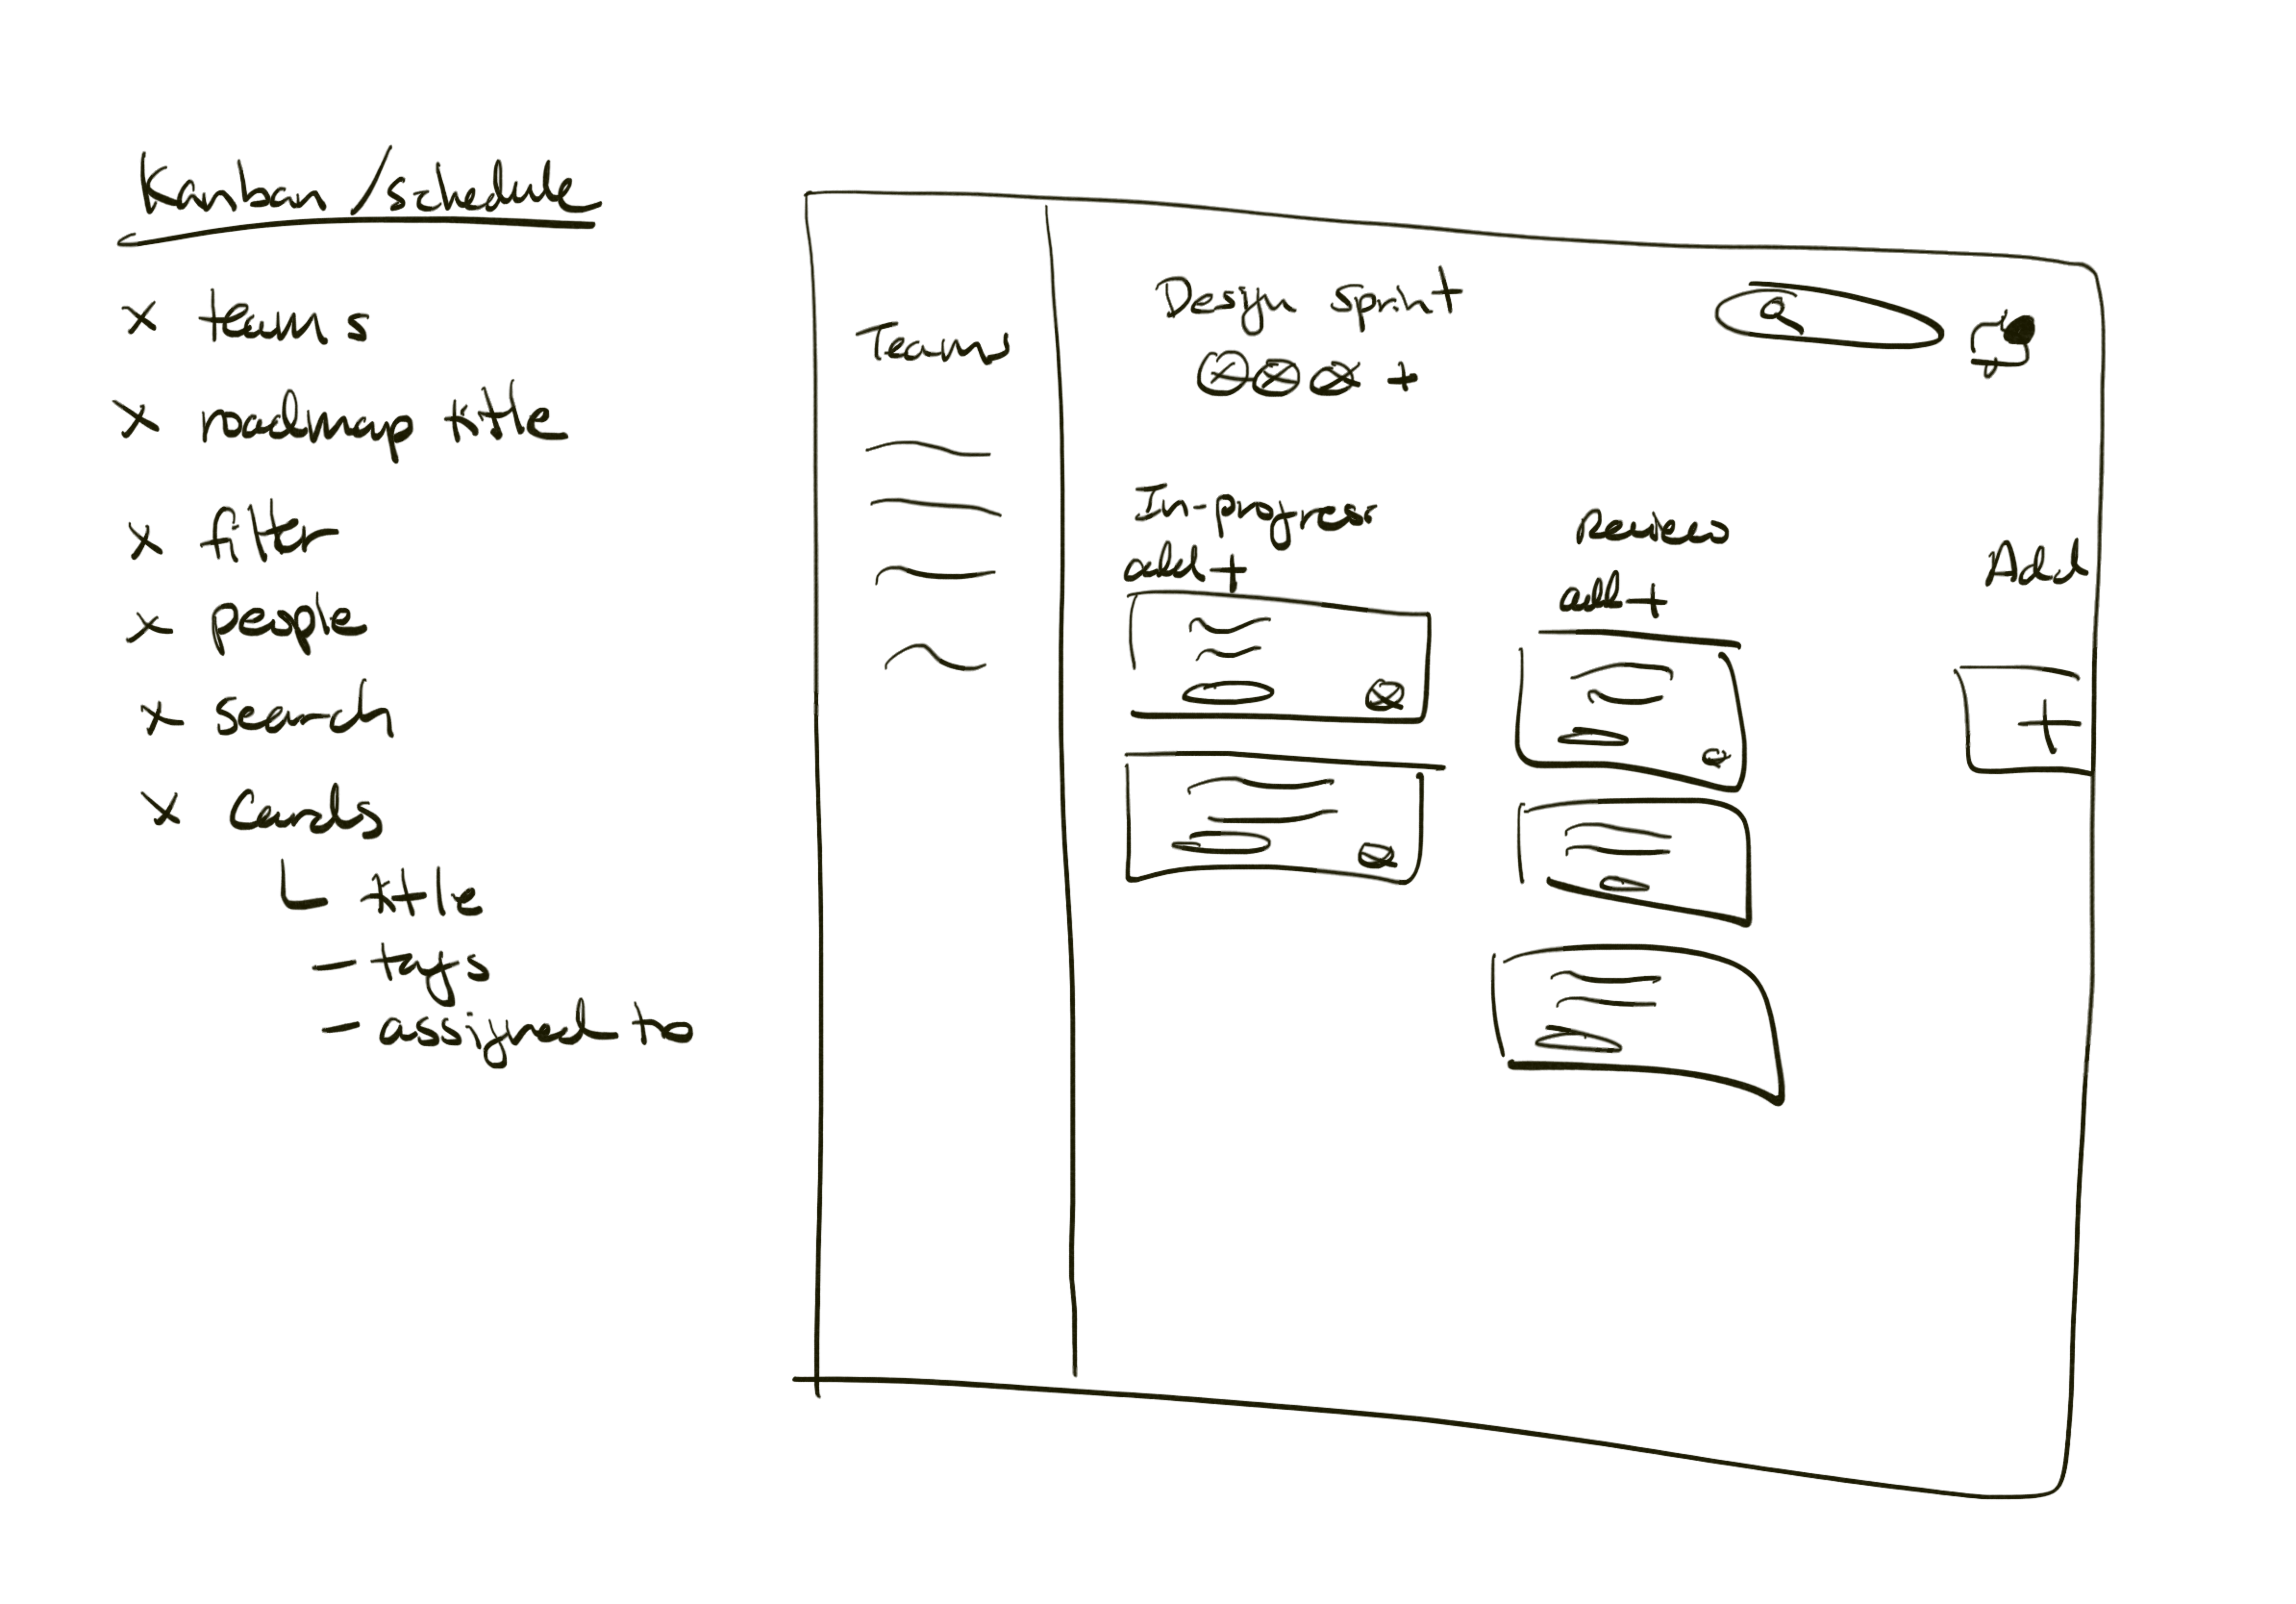 Kanban/schedule
x teams
x roadmap title
x filter
x people
x search
x Cards
title
- tags
- assigned to
Teams
Design Sprint
+
In-progress
add +
Review
add +
Add
+